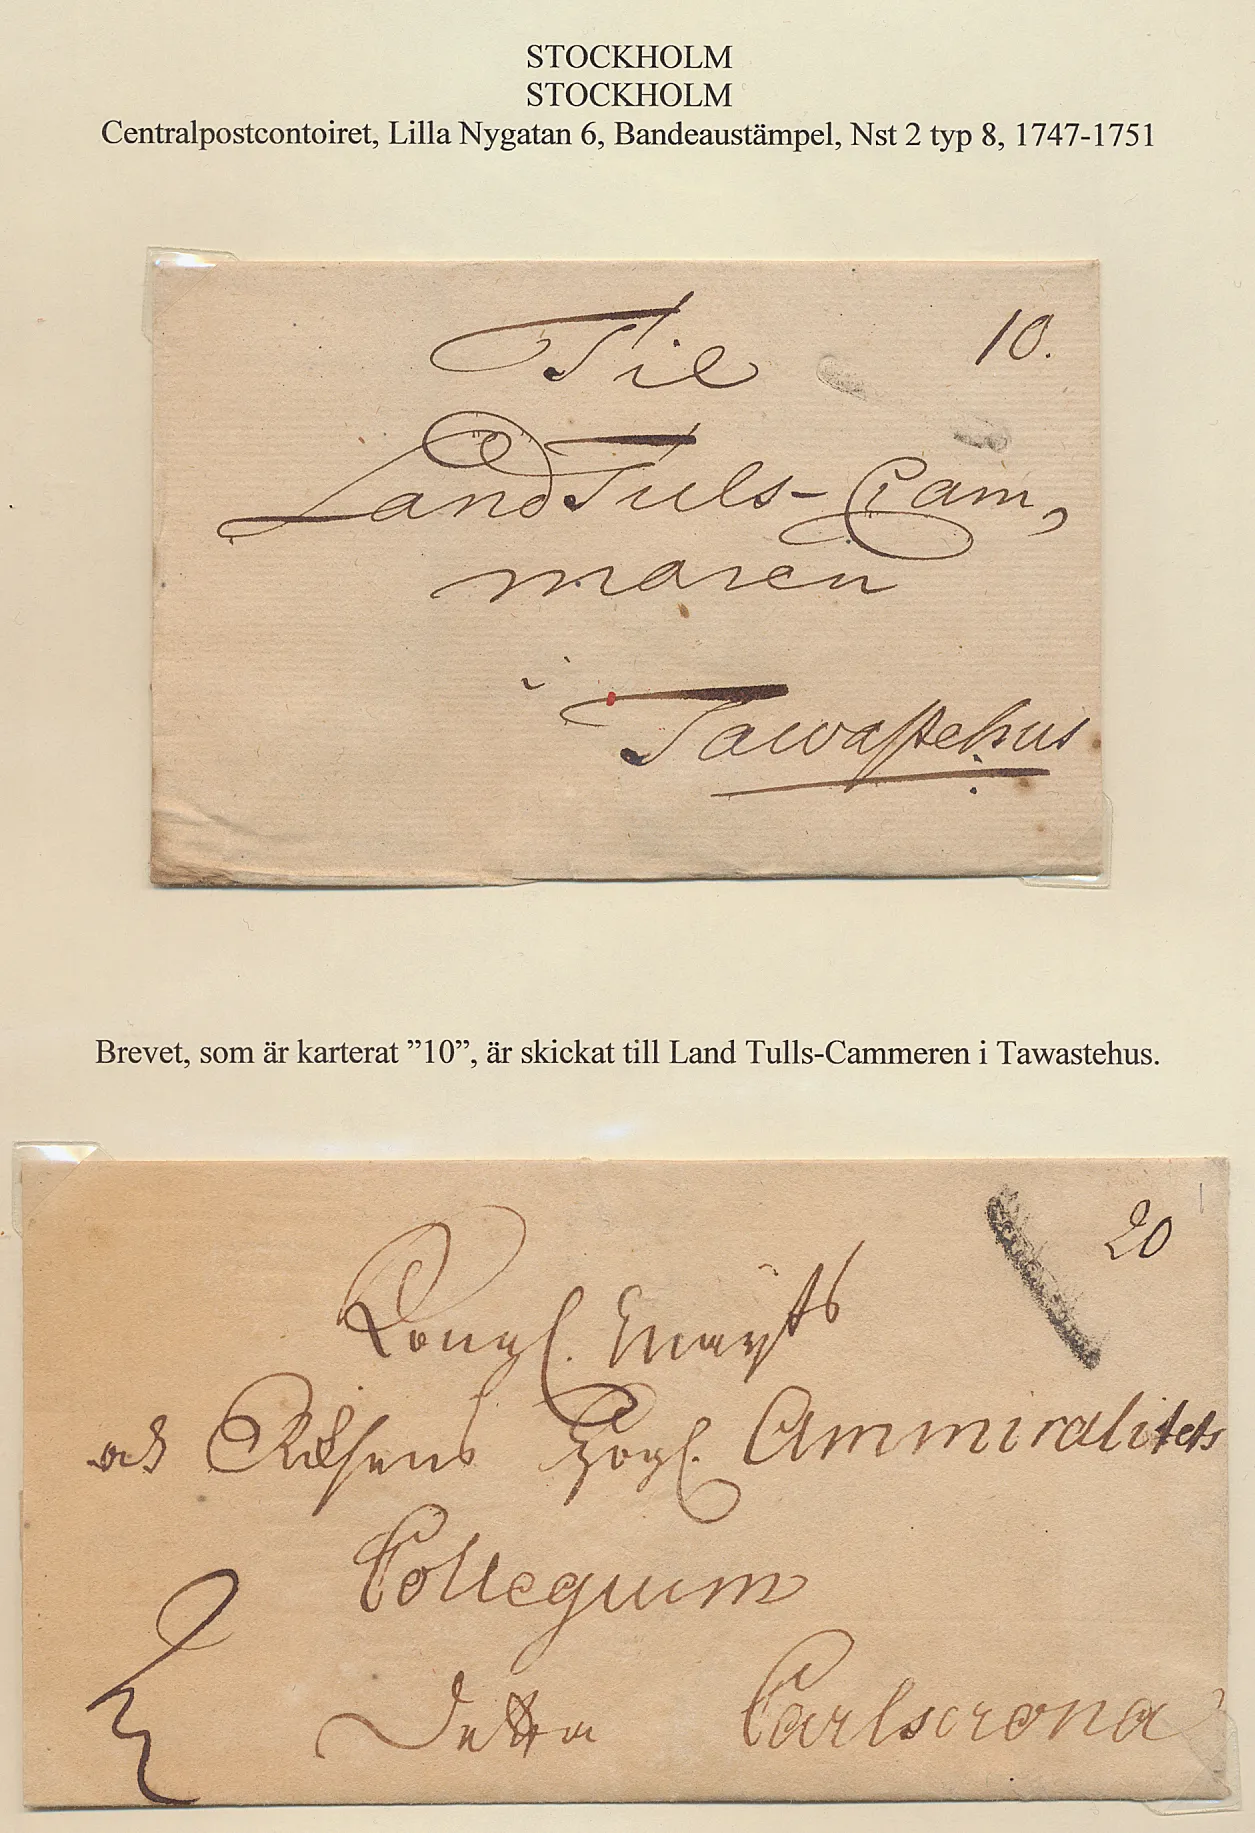 STOCKHOLM
STOCKHOLM
Centralpostcontoiret, Lilla Nygatan 6, Bandeaustämpel, Nst 2 typ 8, 1747-1751
Til
10.
Land Tuls-Cam,
maren
i
Tawastehus
Brevet, som är karterat ”10”, är skickat till Land Tulls-Cammeren i Tawastehus.
20
Kongl. Mayts
och Riksens Högl. Ammiralitets
Collegium
Carlscrona